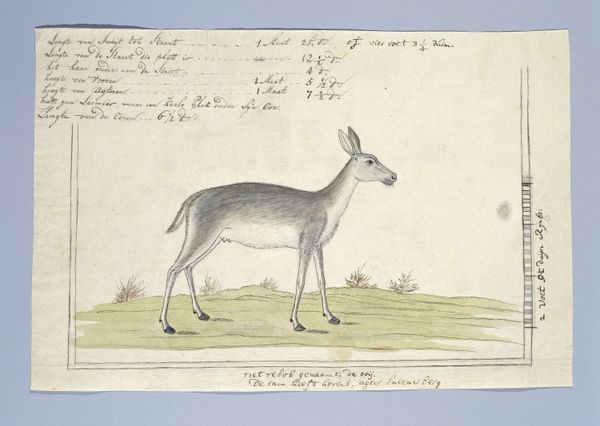 Lengte van Snuijt tot Staert 1 Maat 25 dn of vier voet 3 1/4 duim.
Lengte van de Staart die platt is 12 1/2 dn
het haar onder aan de Staart 4 dn
hoogte van Vooren 1 Maat 5 1/2 dn
hoogte van Agteren 1 Maat 7 1/2 dn
heeft geen maar een kaele plek onder Sijn Oor.
Lengte van de Ooren 6 1/2 dn
2 Voet duijm
rietrebok genaamt, de ooij.
De ram heeft horens, agter Sneeuwberg